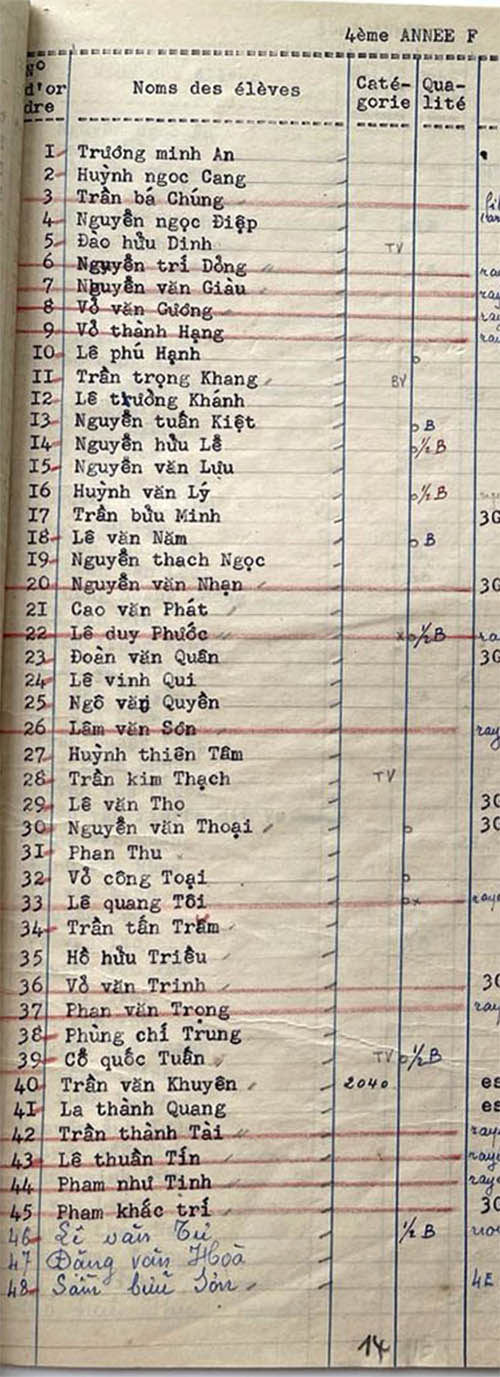 4ème ANNEE F
No d'or dre Noms des élèves Caté- gorie Qua- lité
1 Trương minh An
2 Huỳnh ngoc Cang
3 Trần bá Chúng
4 Nguyễn ngọc Điệp
5 Đào hửu Dinh TV
6 Nguyễn trí Dỏng
7 Nguyễn văn Giàu
8 Vỏ văn Gương
9 Vỏ thành Hạng
10 Lê phú Hạnh o
11 Trần trọng Khang BV
12 Lê trưởng Khánh
13 Nguyễn tuấn Kiệt o B
14 Nguyễn hửu Lễ o ½ B
15 Nguyễn văn Lưu
16 Huỳnh văn Lý o ½ B
17 Trần bửu Minh 3G
18 Lê văn Năm o B
19 Nguyễn thach Ngọc
20 Nguyễn văn Nhạn 3G
21 Cao văn Phát
22 Lê duy Phước x o ½ B
23 Đoàn văn Quân 3G
24 Lê vinh Qui
25 Ngô văn Quyền
26 Lâm văn Sơn ray
27 Huỳnh thiên Tâm
28 Trần kim Thạch TV
29 Lê văn Thọ 3G
30 Nguyễn văn Thoại o 3G
31 Phan Thu
32 Vỏ công Toại o
33 Lê quang Tôi o x ray
34 Trần tấn Trâm
35 Hồ hửu Triều
36 Vỏ văn Trinh 3G
37 Phan văn Trọng ray
38 Phùng chí Trung
39 Cổ quốc Tuấn TV o ½ B
40 Trần văn Khuyên 2040 es
41 La thành Quang es
42 Trần thành Tài ray
43 Lê thuần Tín ray
44 Pham như Tinh ray
45 Pham khắc trí 3G
46 Lê văn Tư ½ B
47 Đăng văn Hoà
48 Sầm bửu Sơn 4E
14